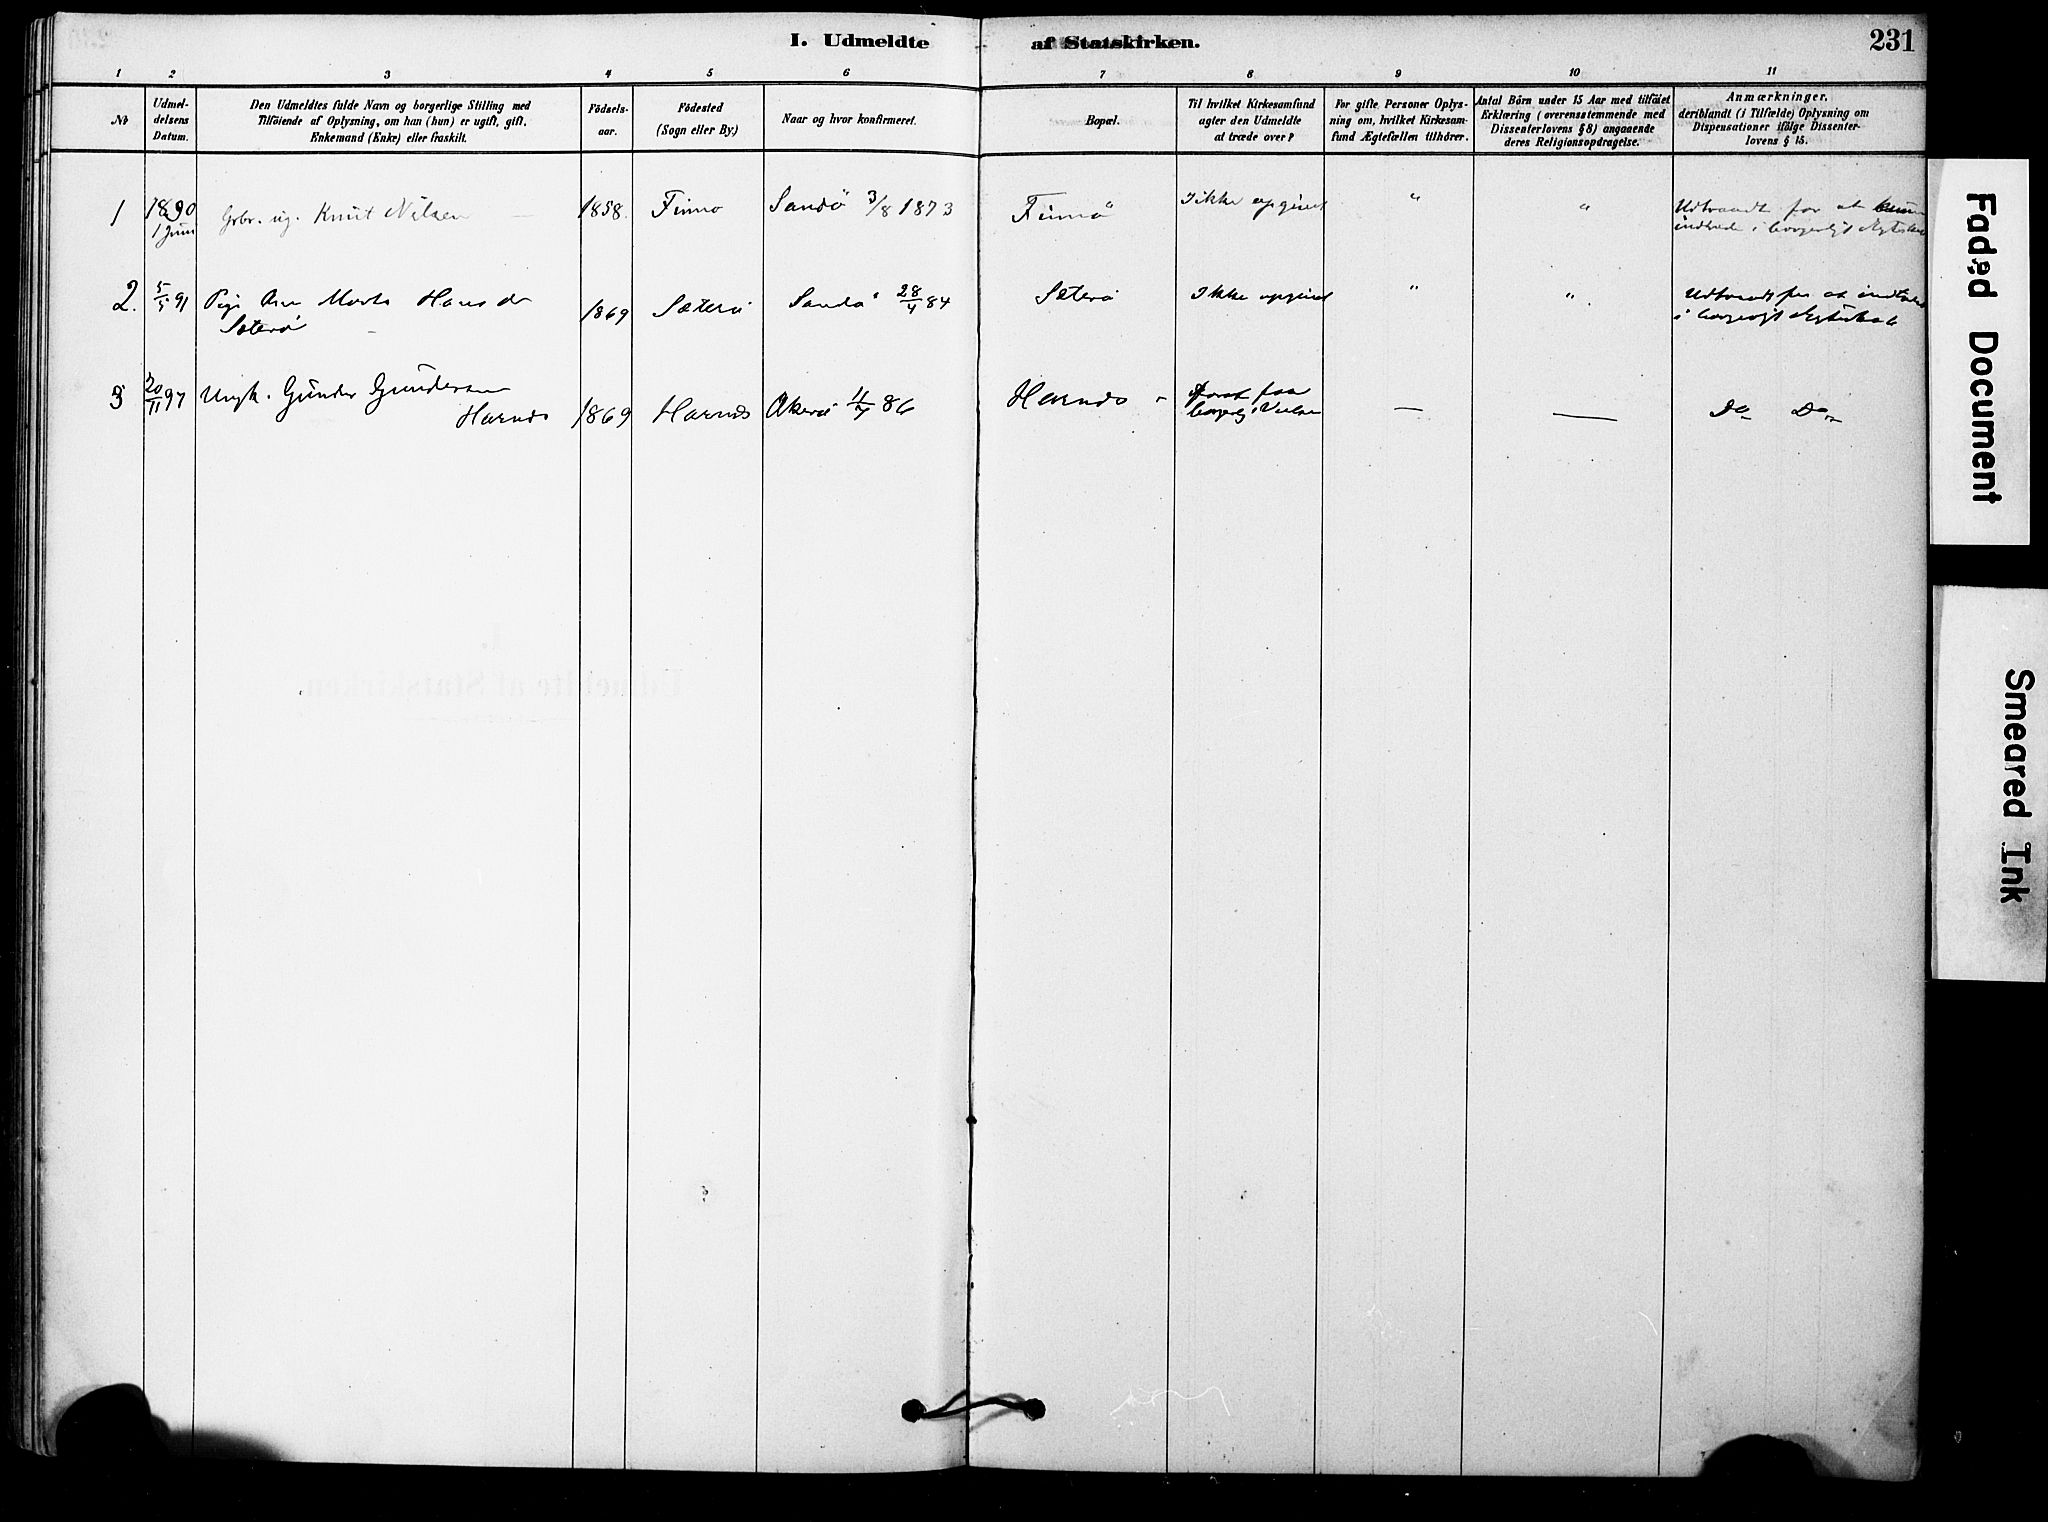 I. Udmeldte af Statskirken.
231
1 2 3 4 5 6 7 8 9 10 11
No
Udmel-
delsens
Datum.
Den Udmeldtes fulde Navn og borgerlige Stilling med
Tilföiende af Oplysning, om han (hun) er ugift, gift,
Enkemand (Enke) eller fraskilt.
Födsels-
aar.
Födested
(Sogn eller By.)
Naar og hvor konfirmeret.
Bopæl.
Til hvilket Kirkesamfund
agter den Udmeldte
at træde over?
For gifte Personer Oplys-
ning om, hvilket Kirkesam-
fund Ægtefællen tilhörer.
Antal Börn under 15 Aar med tilföiet
Erklæring (overensstemmende med
Dissenterlovens § 8) angaaende
deres Religionsopdragelse.
Anmærkninger,
deriblandt (i Tilfælde) Oplysning om
Dispensationer ifölge Dissenter-
lovens § 15.
1 1890 Gbr. ug. Knut Nilsen 1858. Finnö Sandö 3/8 1873 Finnö Ikke opgivet " " Udtraadt for at kunne
1 Juni indtræde i borgerligt Ægteskab
2. 5/5 91 Pige Ane Marta Hansd 1869 Sæterö Sandö 28/4 84 Sæterö Ikke opgivet " " Udtraadt for at indtræde
Sæterö i borgerligt Ægteskab
3 20/11 97 Ungk. Gunder Gundersen
Harnæs 1869 Harnæs Akerö 11/7 86 Harnæs - for at faa
borgerlig Vielse — — Do Do
Faded Document
Smeared Ink